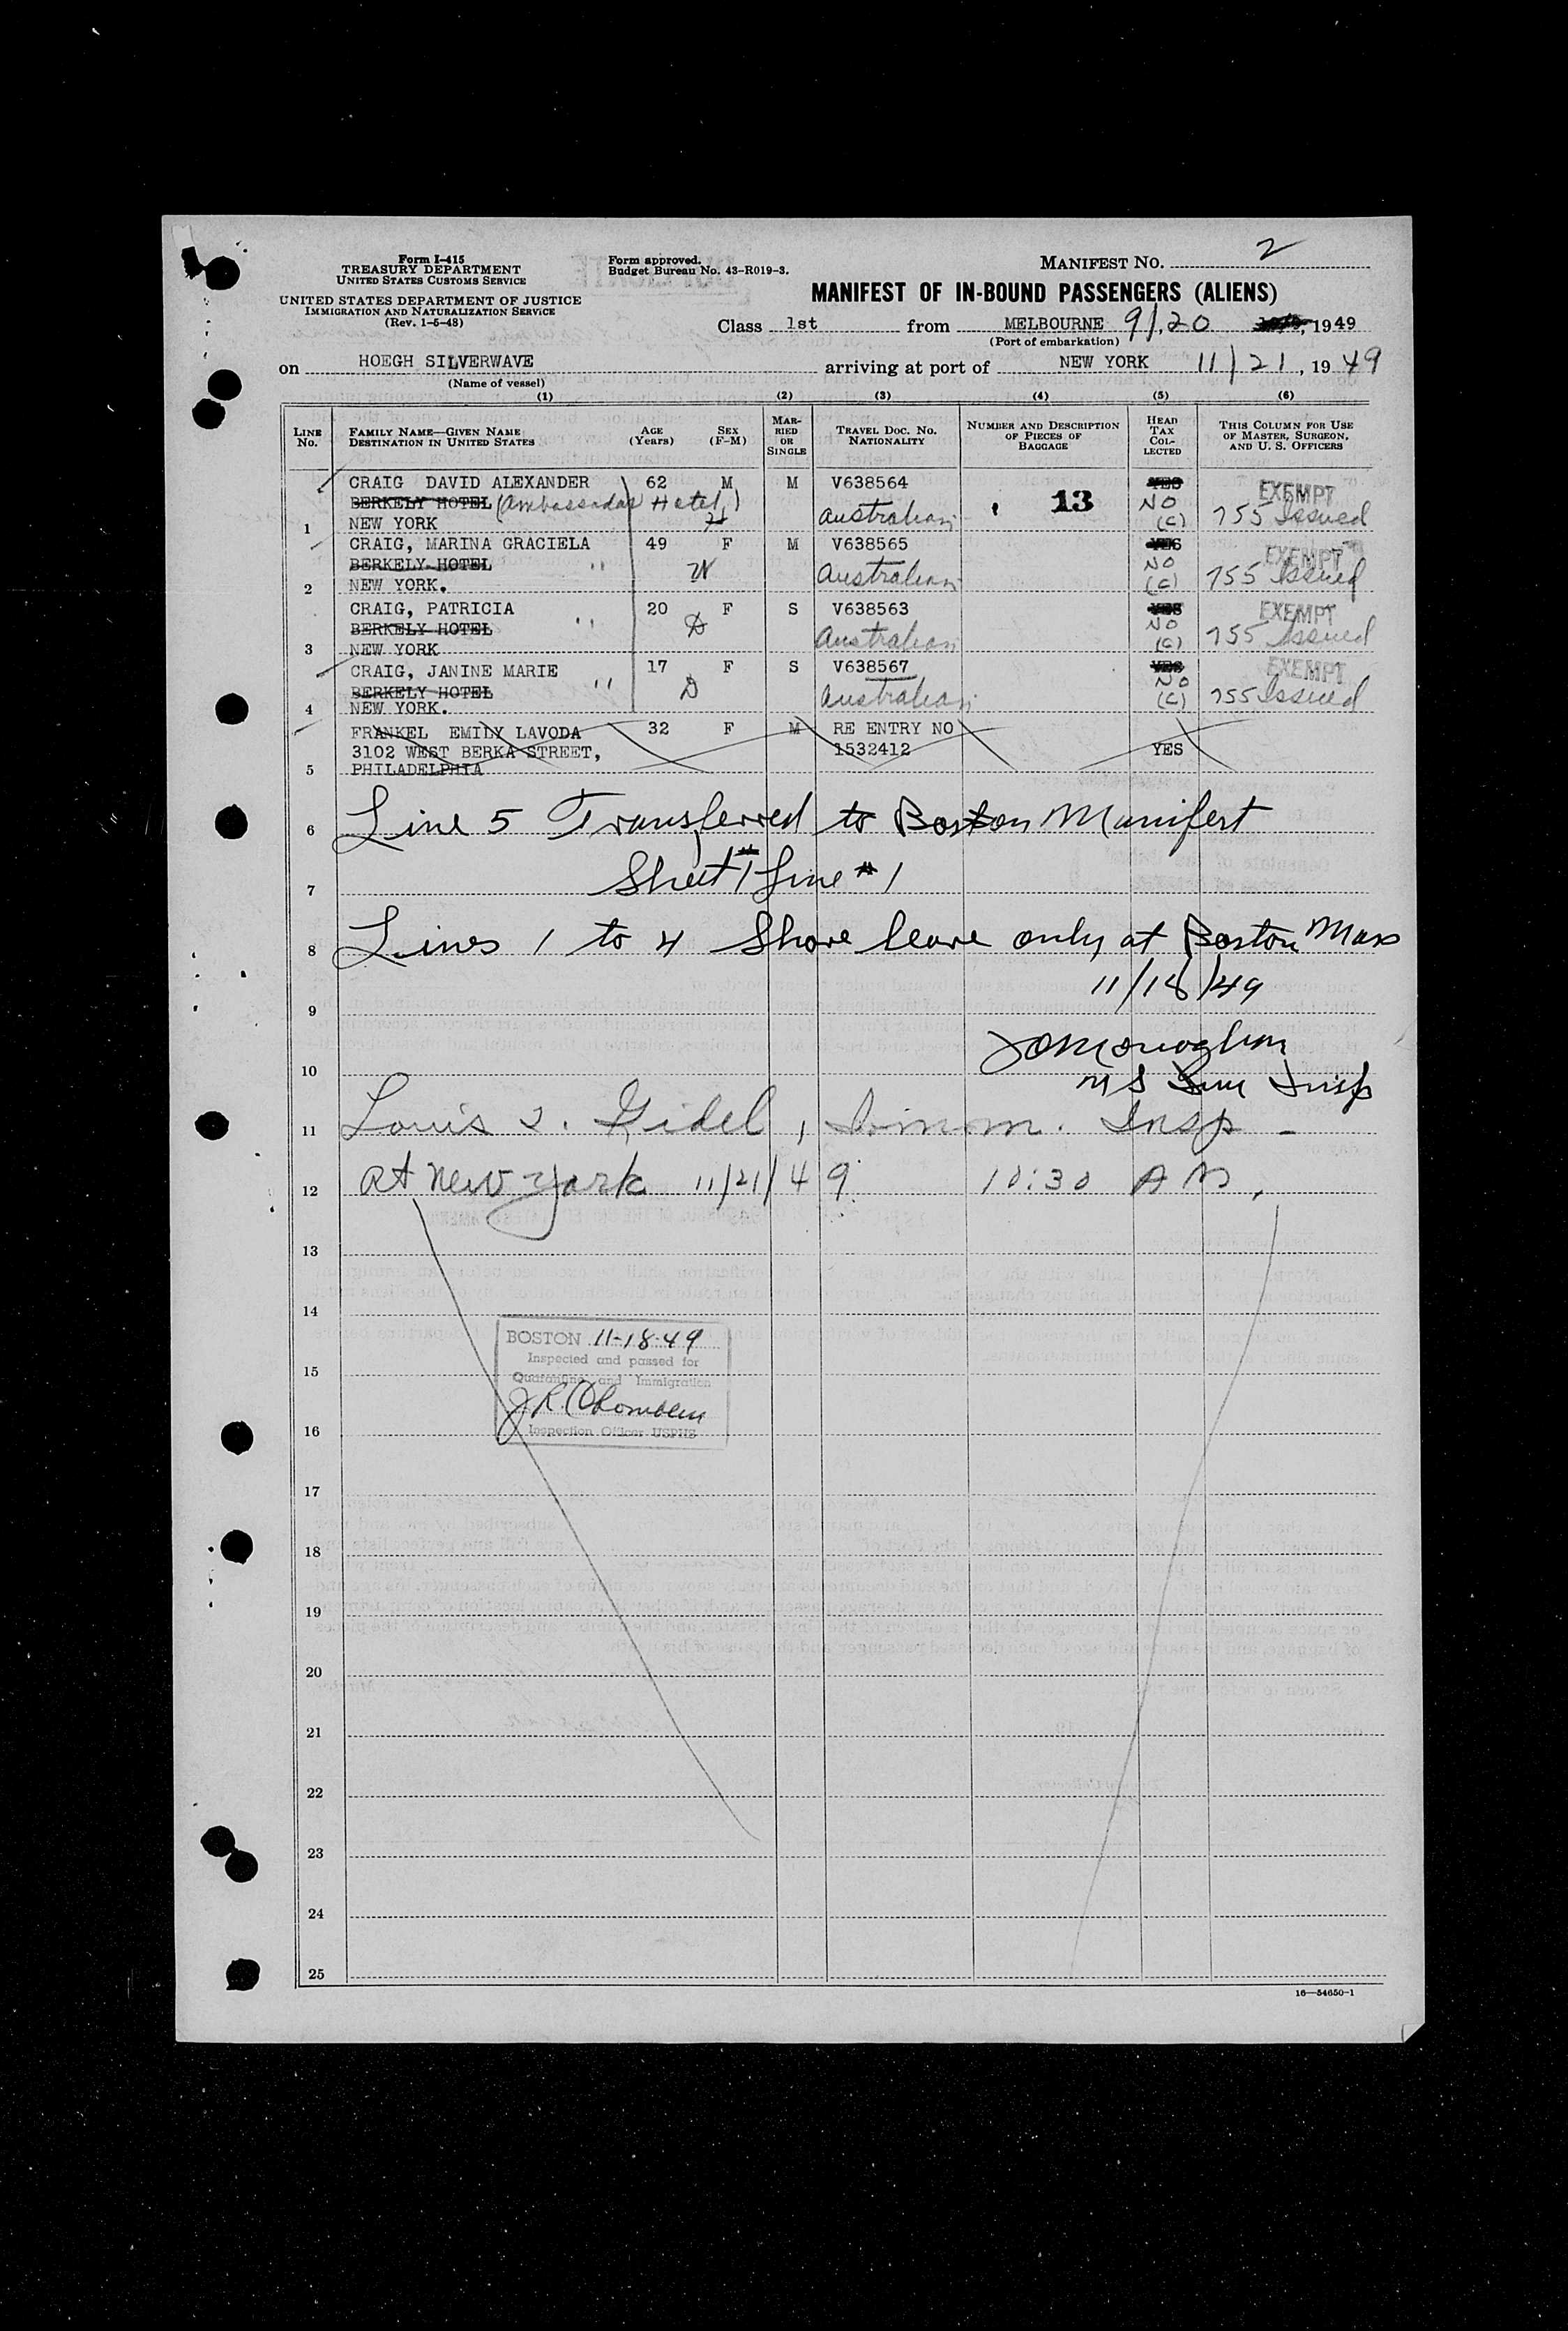 Form I-415
TREASURY DEPARTMENT
UNITED STATES CUSTOMS SERVICE
UNITED STATES DEPARTMENT OF JUSTICE
IMMIGRATION AND NATURALIZATION SERVICE
(Rev. 1-5-48)
Form approved.
Budget Bureau No. 43-R019-3.
MANIFEST NO. 2
MANIFEST OF IN-BOUND PASSENGERS (ALIENS)
Class 1st from MELBOURNE 9/20, 1949
(Port of embarkation)
on HOEGH SILVERWAVE arriving at port of NEW YORK 11/21, 1949
(Name of vessel)
(1) (2) (3) (4) (5) (6)
LINE NO. FAMILY NAME—GIVEN NAME DESTINATION IN UNITED STATES AGE (Years) SEX (F-M) MARRIED OR SINGLE TRAVEL DOC. NO. NATIONALITY NUMBER AND DESCRIPTION OF PIECES OF BAGGAGE HEAD TAX COLLECTED THIS COLUMN FOR USE OF MASTER, SURGEON, AND U. S. OFFICERS
CRAIG DAVID ALEXANDER 62 M M V638564 YES EXEMPT
BERKELY HOTEL (Ambassador Hotel) Australian 13 NO 755 Issued
1 NEW YORK (C)
CRAIG, MARINA GRACIELA 49 F M V638565 YES EXEMPT
BERKELY HOTEL " W Australian NO 755 Issued
2 NEW YORK. (C)
CRAIG, PATRICIA 20 F S V638563 YES EXEMPT
BERKELY HOTEL " D Australian NO 755 Issued
3 NEW YORK (C)
CRAIG, JANINE MARIE 17 F S V638567 YES EXEMPT
BERKELY HOTEL " D Australian NO 755 Issued
4 NEW YORK. (C)
FRANKEL EMILY LAVODA 32 F M RE ENTRY NO
3102 WEST BERKA STREET, 1532412 YES
5 PHILADELPHIA
6 Line 5 Transferred to Boston Manifest
7 Sheet #1 Line #1
8 Lines 1 to 4 Shore leave only at Boston Mass
9 11/18/49
10
Insp
11 Louis J. Gidel, Immm. Insp -
12 at New York 11/21/49 10:30 AM.
13
14
BOSTON 11-18-49
Inspected and passed for
15
Quarantine and Immigration
J.R.
16 Inspection Officer USPHS
17
18
19
20
21
22
23
24
25
16—54650-1